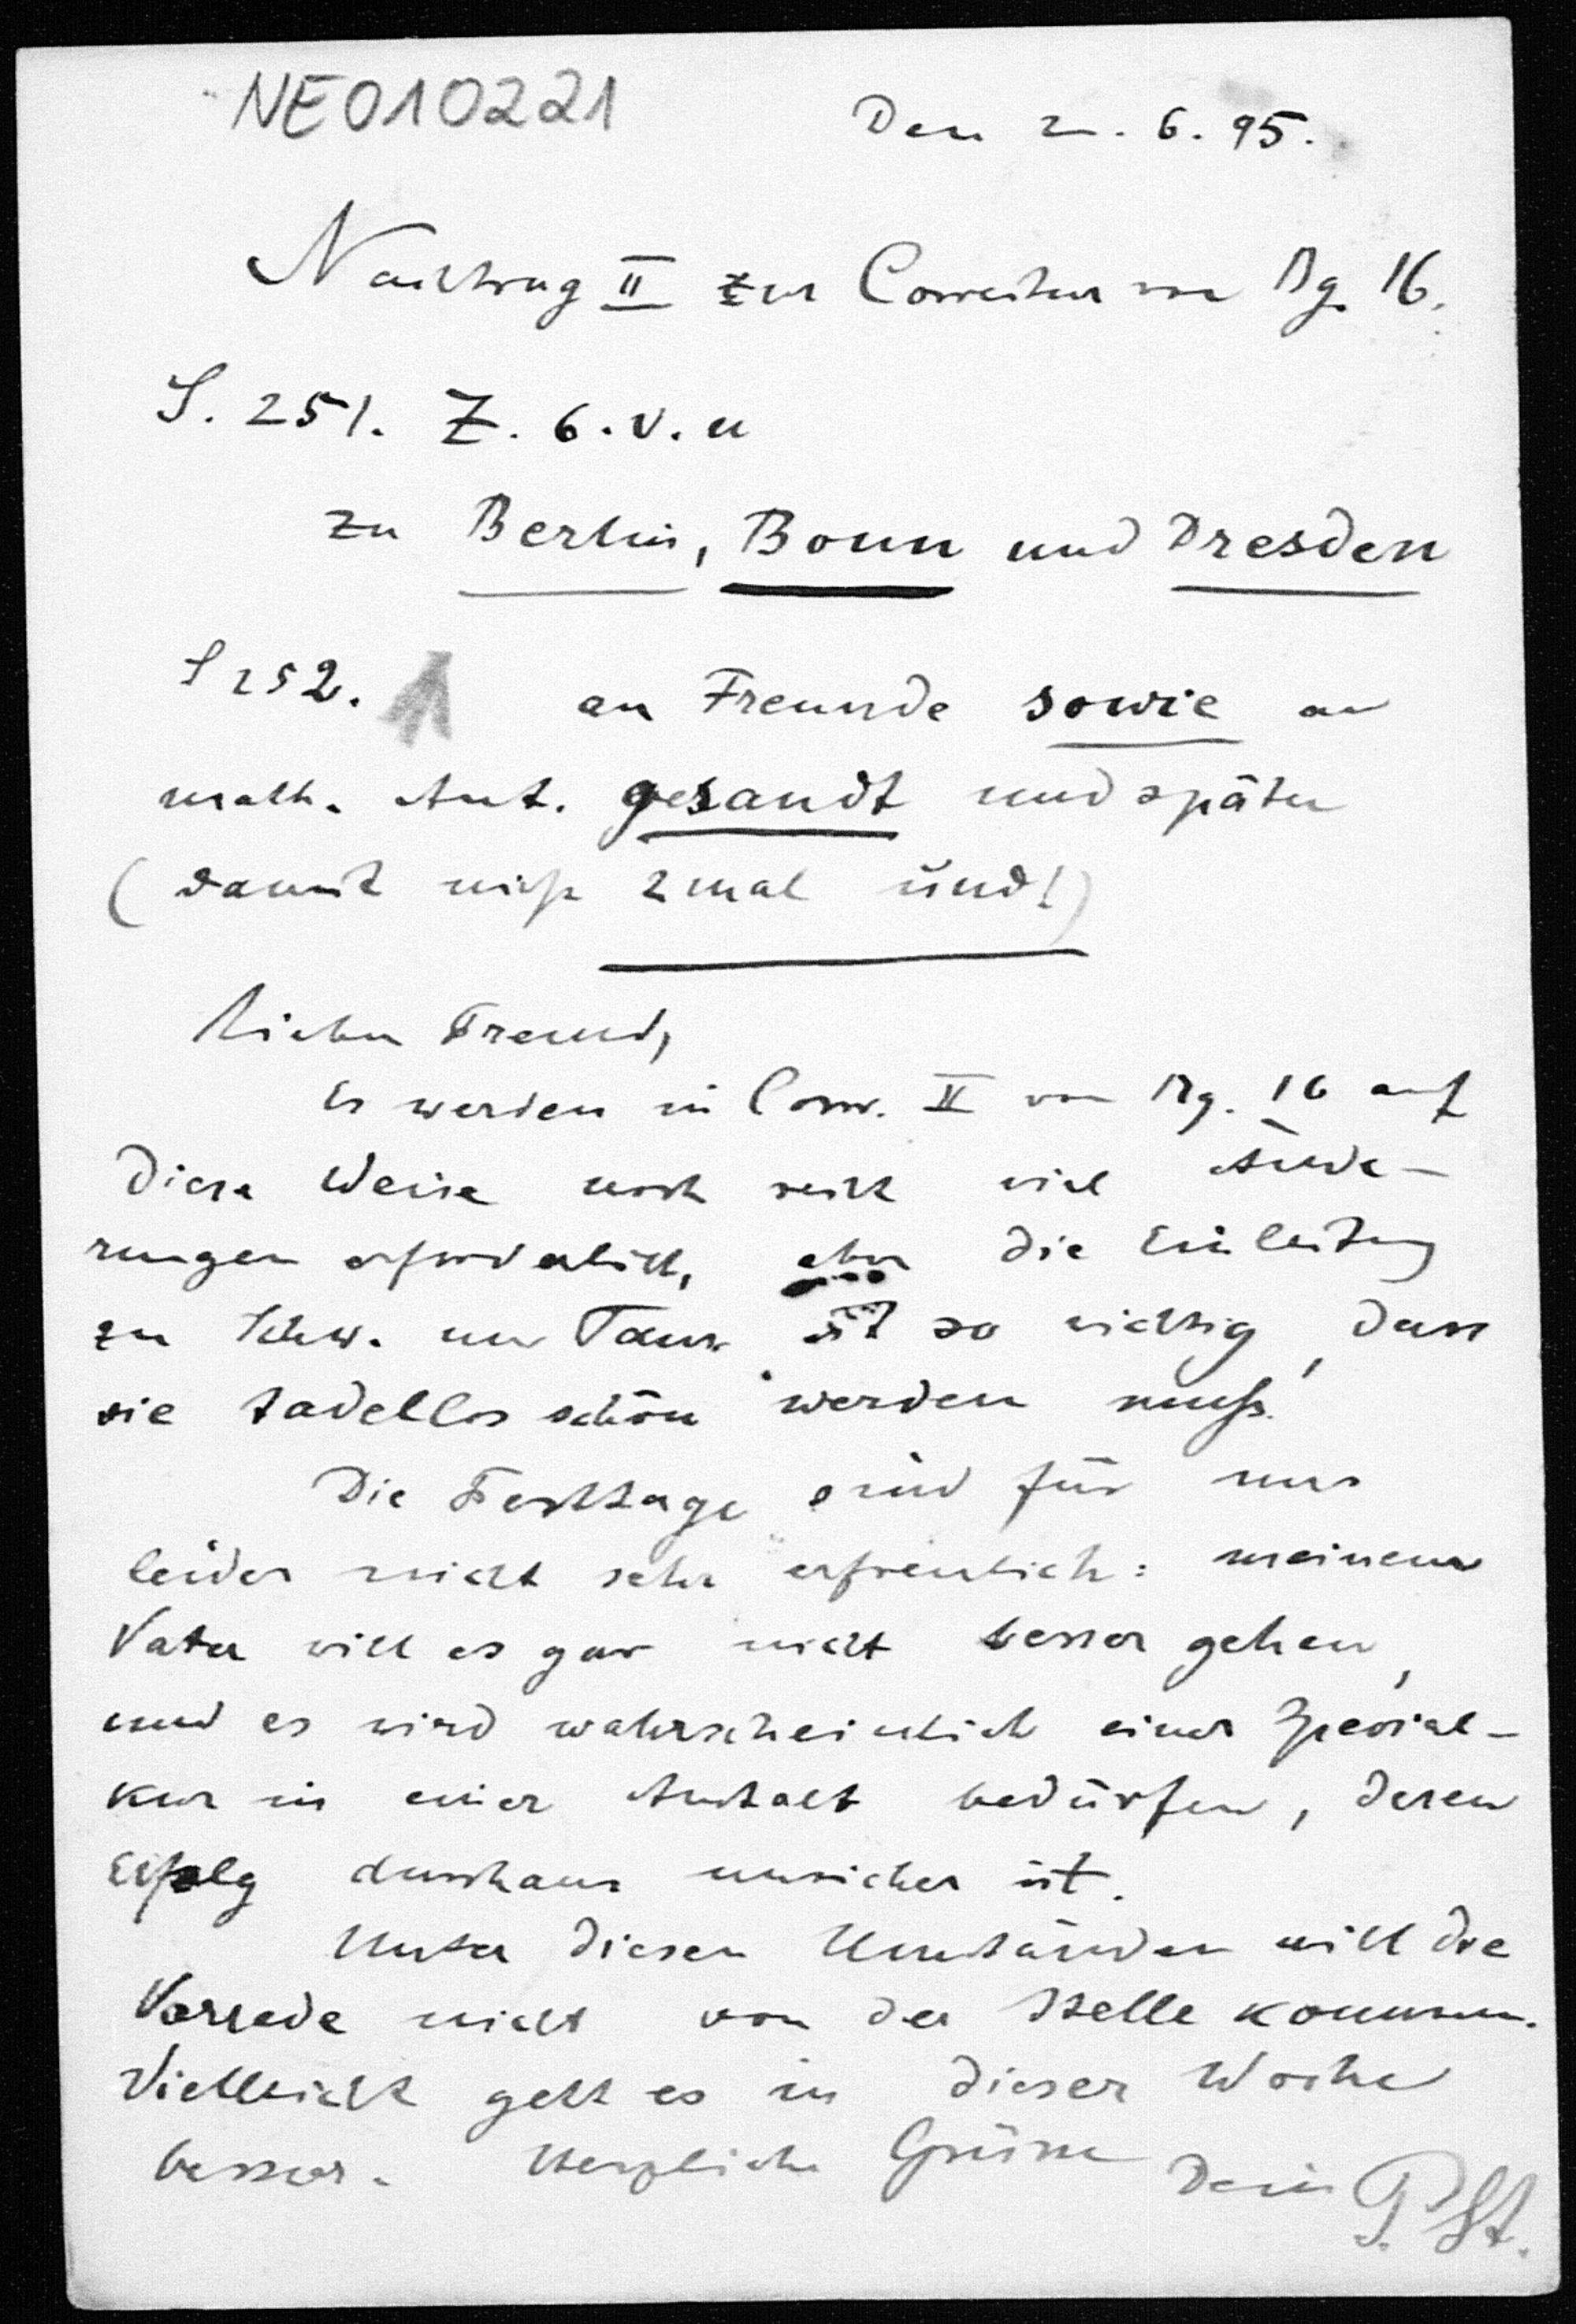 NE010221
Den 2. 6. 95.
Nachtrag II zur Correctur von Bg. 16.
S. 251. Z. 6. v. u
zu Berlin, Bonn und Dresden
S 252. an Freunde sowie an
math. Anst. gesandt und später
(damit nicht 2 mal und!)
Lieber Freund,
Es werden in Corr. II von Bg. 16 auf
diese Weise noch recht viel Ände-
rungen erforderlich, aber die Einleitung
zu Schw. und Taur. ist so wichtig, dass
sie tadellos schön werden muß.
Die Festtage sind für uns
leider nicht sehr erfreulich: meinem
Vater will es gar nicht besser gehen,
und es wird wahrscheinlich einer Special-
kur in einer Anstalt bedürfen, deren
Erfolg durchaus unsicher ist.
Unter diesen Umständen will die
Vorrede nicht von der Stelle kommen.
Vielleicht geht es in dieser Woche
besser. Herzliche Grüsse Dein P. St.